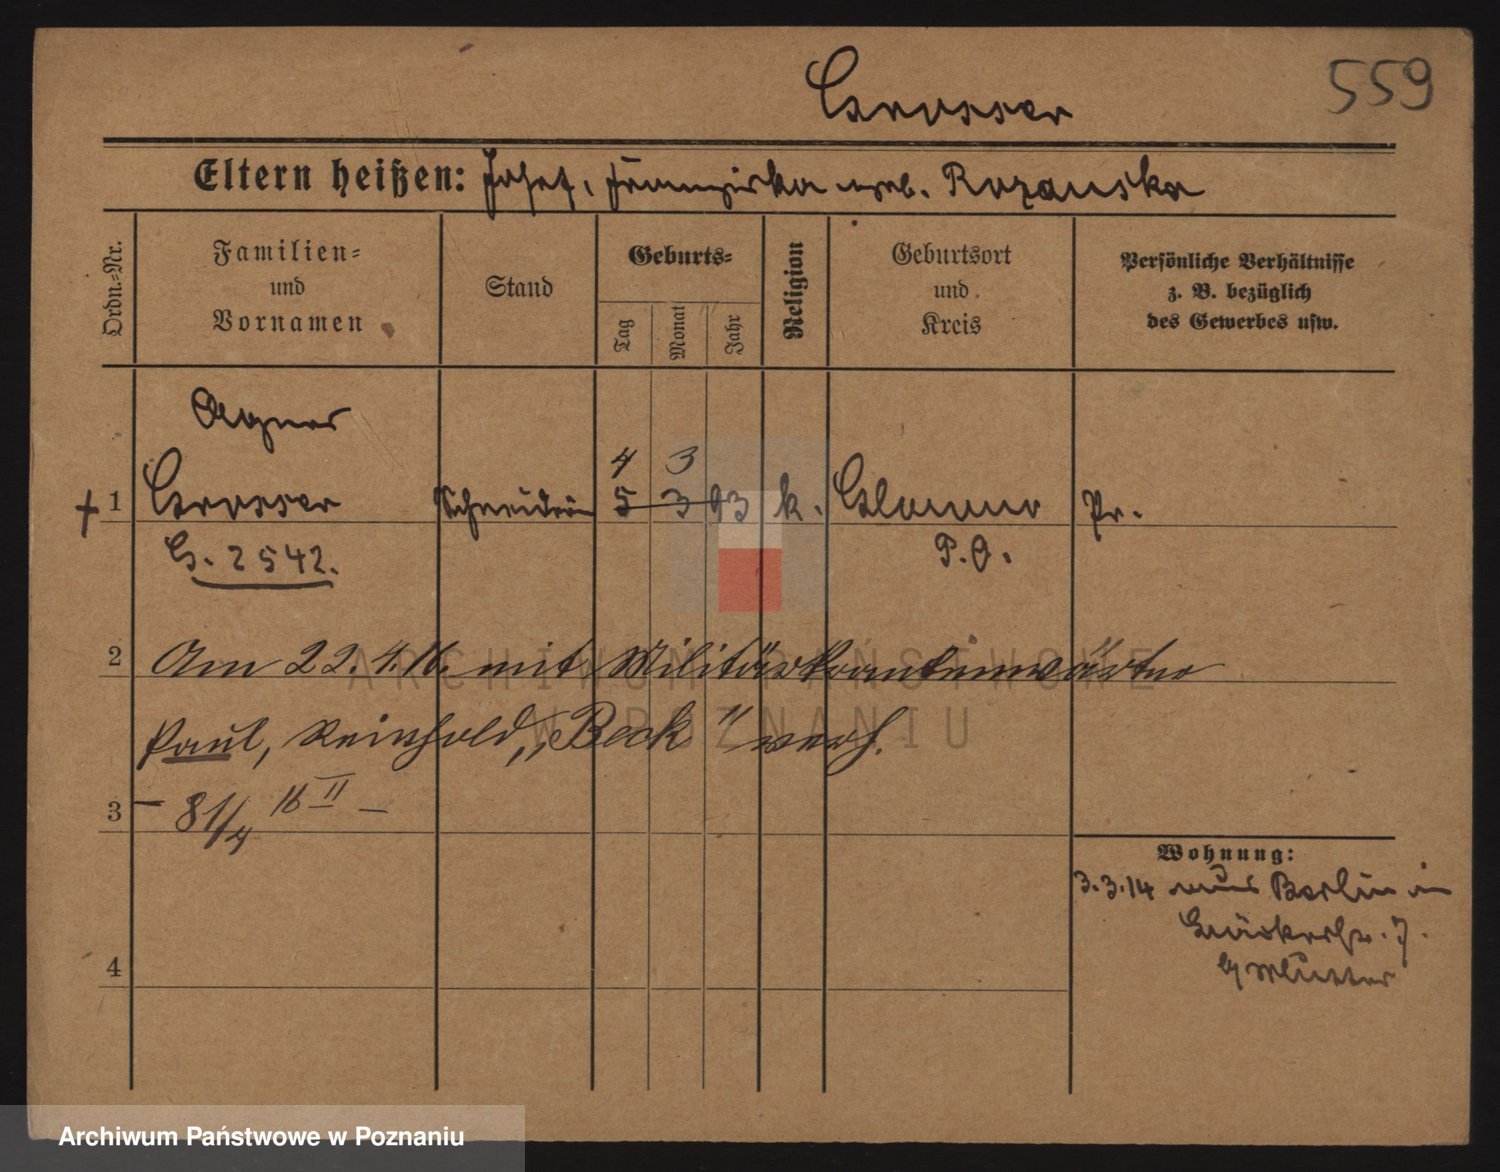 Grosser
559
Eltern heißen: Josef, Franziska geb. Rozanska
Ordn.-Nr.
Familien- und Vornamen
Stand
Geburts-
Tag
Monat
Jahr
Religion
Geburtsort und Kreis
Persönliche Verhältnisse z. B. bezüglich des Gewerbes usw.
Agnes
4 3
+ 1 Grosser Schneiderin 5 3 93 k. Glowno Pr.
G. 2542. P.O.
2 Am 22.4.16. mit Militärkrankenwärter
Paul, Reinhold, „Beck" verh.
3 — 81/4 16 II —
Wohnung:
3.3.14 aus Berlin in
7.
b/ Mutter
4
ARCHIWUM PAŃSTWOWE
W POZNANIU
Archiwum Państwowe w Poznaniu